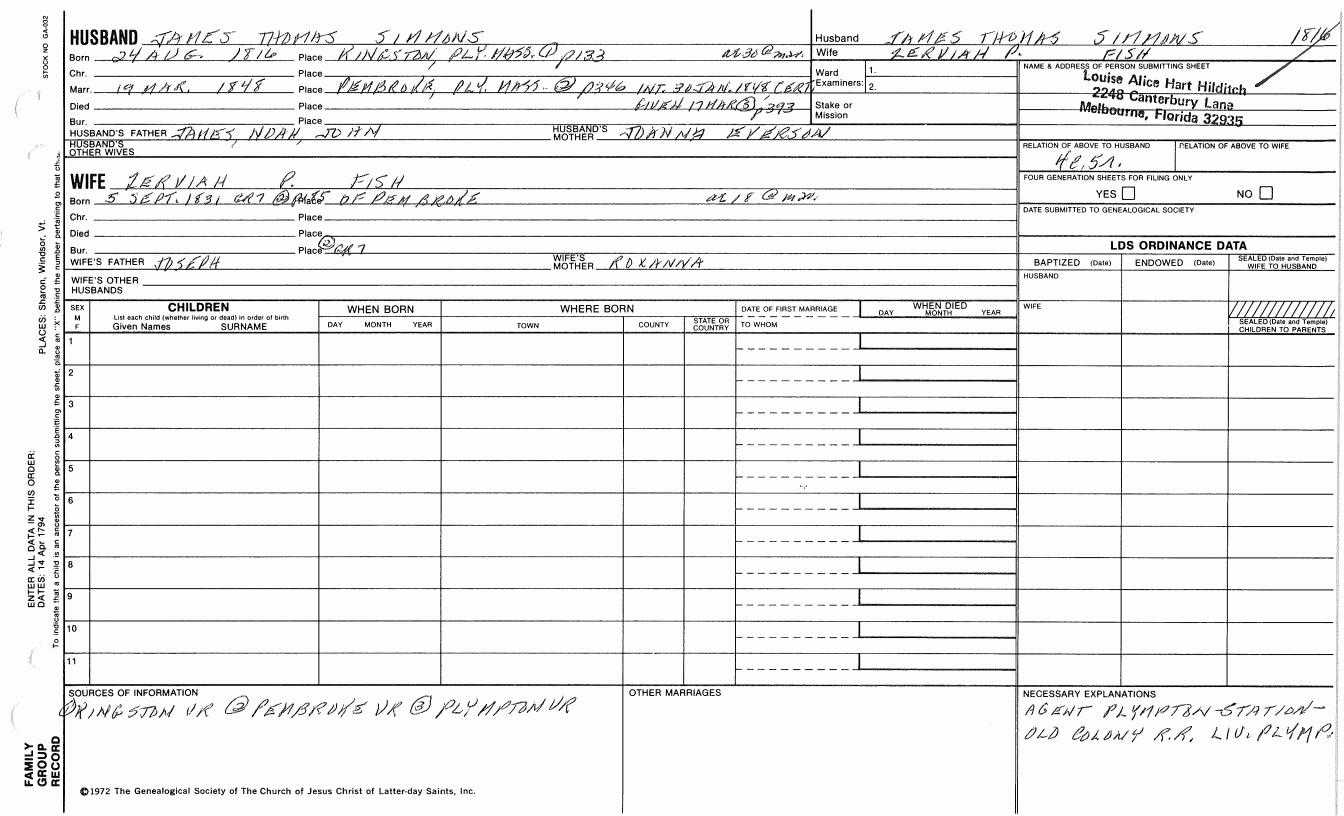 STOCK NO GA-032
HUSBAND JAMES THOMAS SIMMONS
Born 24 AUG. 1816 Place KINGSTON, PLY. MASS. ① p133 ae 30 @ mar.
Chr. Place
Marr. 19 MAR. 1848 Place PEMBROKE, PLY. MASS. ② p346 INT. 30 JAN. 1848 CERT
Died Place GIVEN 17 MAR ③, p393
Bur. Place
HUSBAND'S FATHER JAMES, NOAH, JOHN HUSBAND'S MOTHER JOANNA EVERSON
HUSBAND'S OTHER WIVES
WIFE ZERVIAH P. FISH
Born 5 SEPT. 1831 GR7 ② Place OF PEMBROKE ae 18 @ mar.
Chr. Place
Died Place
Bur. Place ② GR7
WIFE'S FATHER JOSEPH WIFE'S MOTHER ROXANNA
WIFE'S OTHER HUSBANDS
Husband JAMES THOMAS SIMMONS 1816
Wife ZERVIAH P. FISH
Ward Examiners: 1.
2.
Stake or Mission
NAME & ADDRESS OF PERSON SUBMITTING SHEET
Louise Alice Hart Hilditch
2248 Canterbury Lane
Melbourne, Florida 32935
RELATION OF ABOVE TO HUSBAND RELATION OF ABOVE TO WIFE
4c,5r.
FOUR GENERATION SHEETS FOR FILING ONLY
YES NO
DATE SUBMITTED TO GENEALOGICAL SOCIETY
LDS ORDINANCE DATA
BAPTIZED (Date) ENDOWED (Date) SEALED (Date and Temple) WIFE TO HUSBAND
HUSBAND
WIFE
SEALED (Date and Temple) CHILDREN TO PARENTS
SEX M F
CHILDREN
List each child (whether living or dead) in order of birth
Given Names SURNAME
WHEN BORN
DAY MONTH YEAR
WHERE BORN
TOWN COUNTY STATE OR COUNTRY
DATE OF FIRST MARRIAGE
TO WHOM
WHEN DIED
DAY MONTH YEAR
1
2
3
4
5
6
7
8
9
10
11
SOURCES OF INFORMATION
① KINGSTON VR ② PEMBROKE VR ③ PLYMPTON VR
OTHER MARRIAGES
NECESSARY EXPLANATIONS
AGENT PLYMPTON-STATION-
OLD COLONY R.R. LIV. PLYMP.
©1972 The Genealogical Society of The Church of Jesus Christ of Latter-day Saints, Inc.
FAMILY GROUP RECORD
ENTER ALL DATA IN THIS ORDER:
DATES: 14 Apr 1794
PLACES: Sharon, Windsor, Vt.
To indicate that a child is an ancestor of the person submitting the sheet, place an "X" behind the number pertaining to that